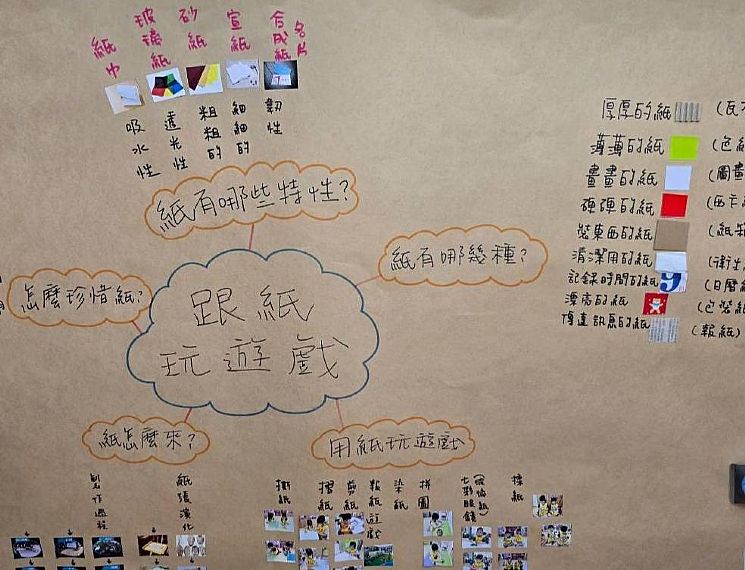 紙巾
玻璃紙
砂紙
宣紙
合成紙
名片
吸水性
透光性
粗粗的
細細的
韌性
紙有哪些特性?
厚厚的紙
薄薄的紙
畫畫的紙
硬硬的紙
裝東西的紙
清潔用的紙
記錄時間的紙
漂亮的紙
傳達訊息的紙
(色紙
(圖畫
(西卡
(紙
(衛生
(日曆
(包裝紙
(報紙)
紙有哪幾種?
怎麼珍惜紙?
跟紙
玩遊戲
紙怎麼來?
用紙玩遊戲
製作過程
紙張演化
撕紙
摺紙
剪紙
報紙遊戲
染紙
拼圖
(玻璃紙)
七彩眼鏡
揉紙